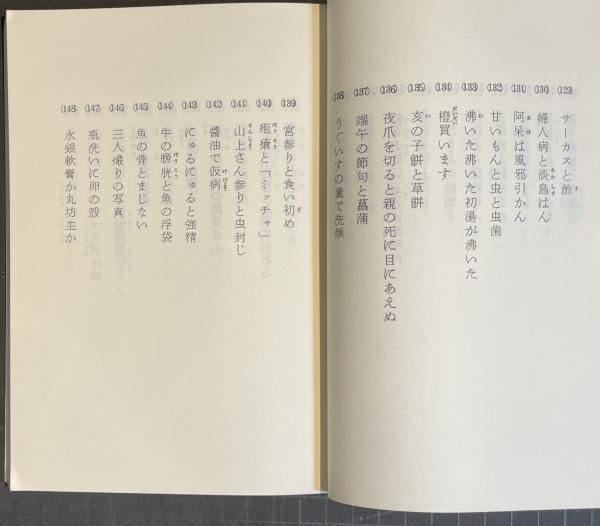 (129) サーカスと酢
(130) 婦人病と淡島はん
(131) 阿呆は風邪引かん
(132) 甘いもんと虫と虫歯
(133) 沸いた沸いた初湯が沸いた
(134) 橙買います
(135) 亥の子餅と草餅
(136) 夜爪を切ると親の死に目にあえぬ
(137) 端午の節句と菖蒲
(138) うぐいすの糞で洗顔
(139) 宮参りと食い初め
(140) 疱瘡と「ミッチャ」
(141) 山上さん参りと虫封じ
(142) 醬油で仮病
(143) にゅるにゅると強精
(144) 牛の膀胱と魚の浮袋
(145) 魚の骨とまじない
(146) 三人撮りの写真
(147) 瓶洗いに卵の殻
(148) 水銀軟膏か丸坊主か